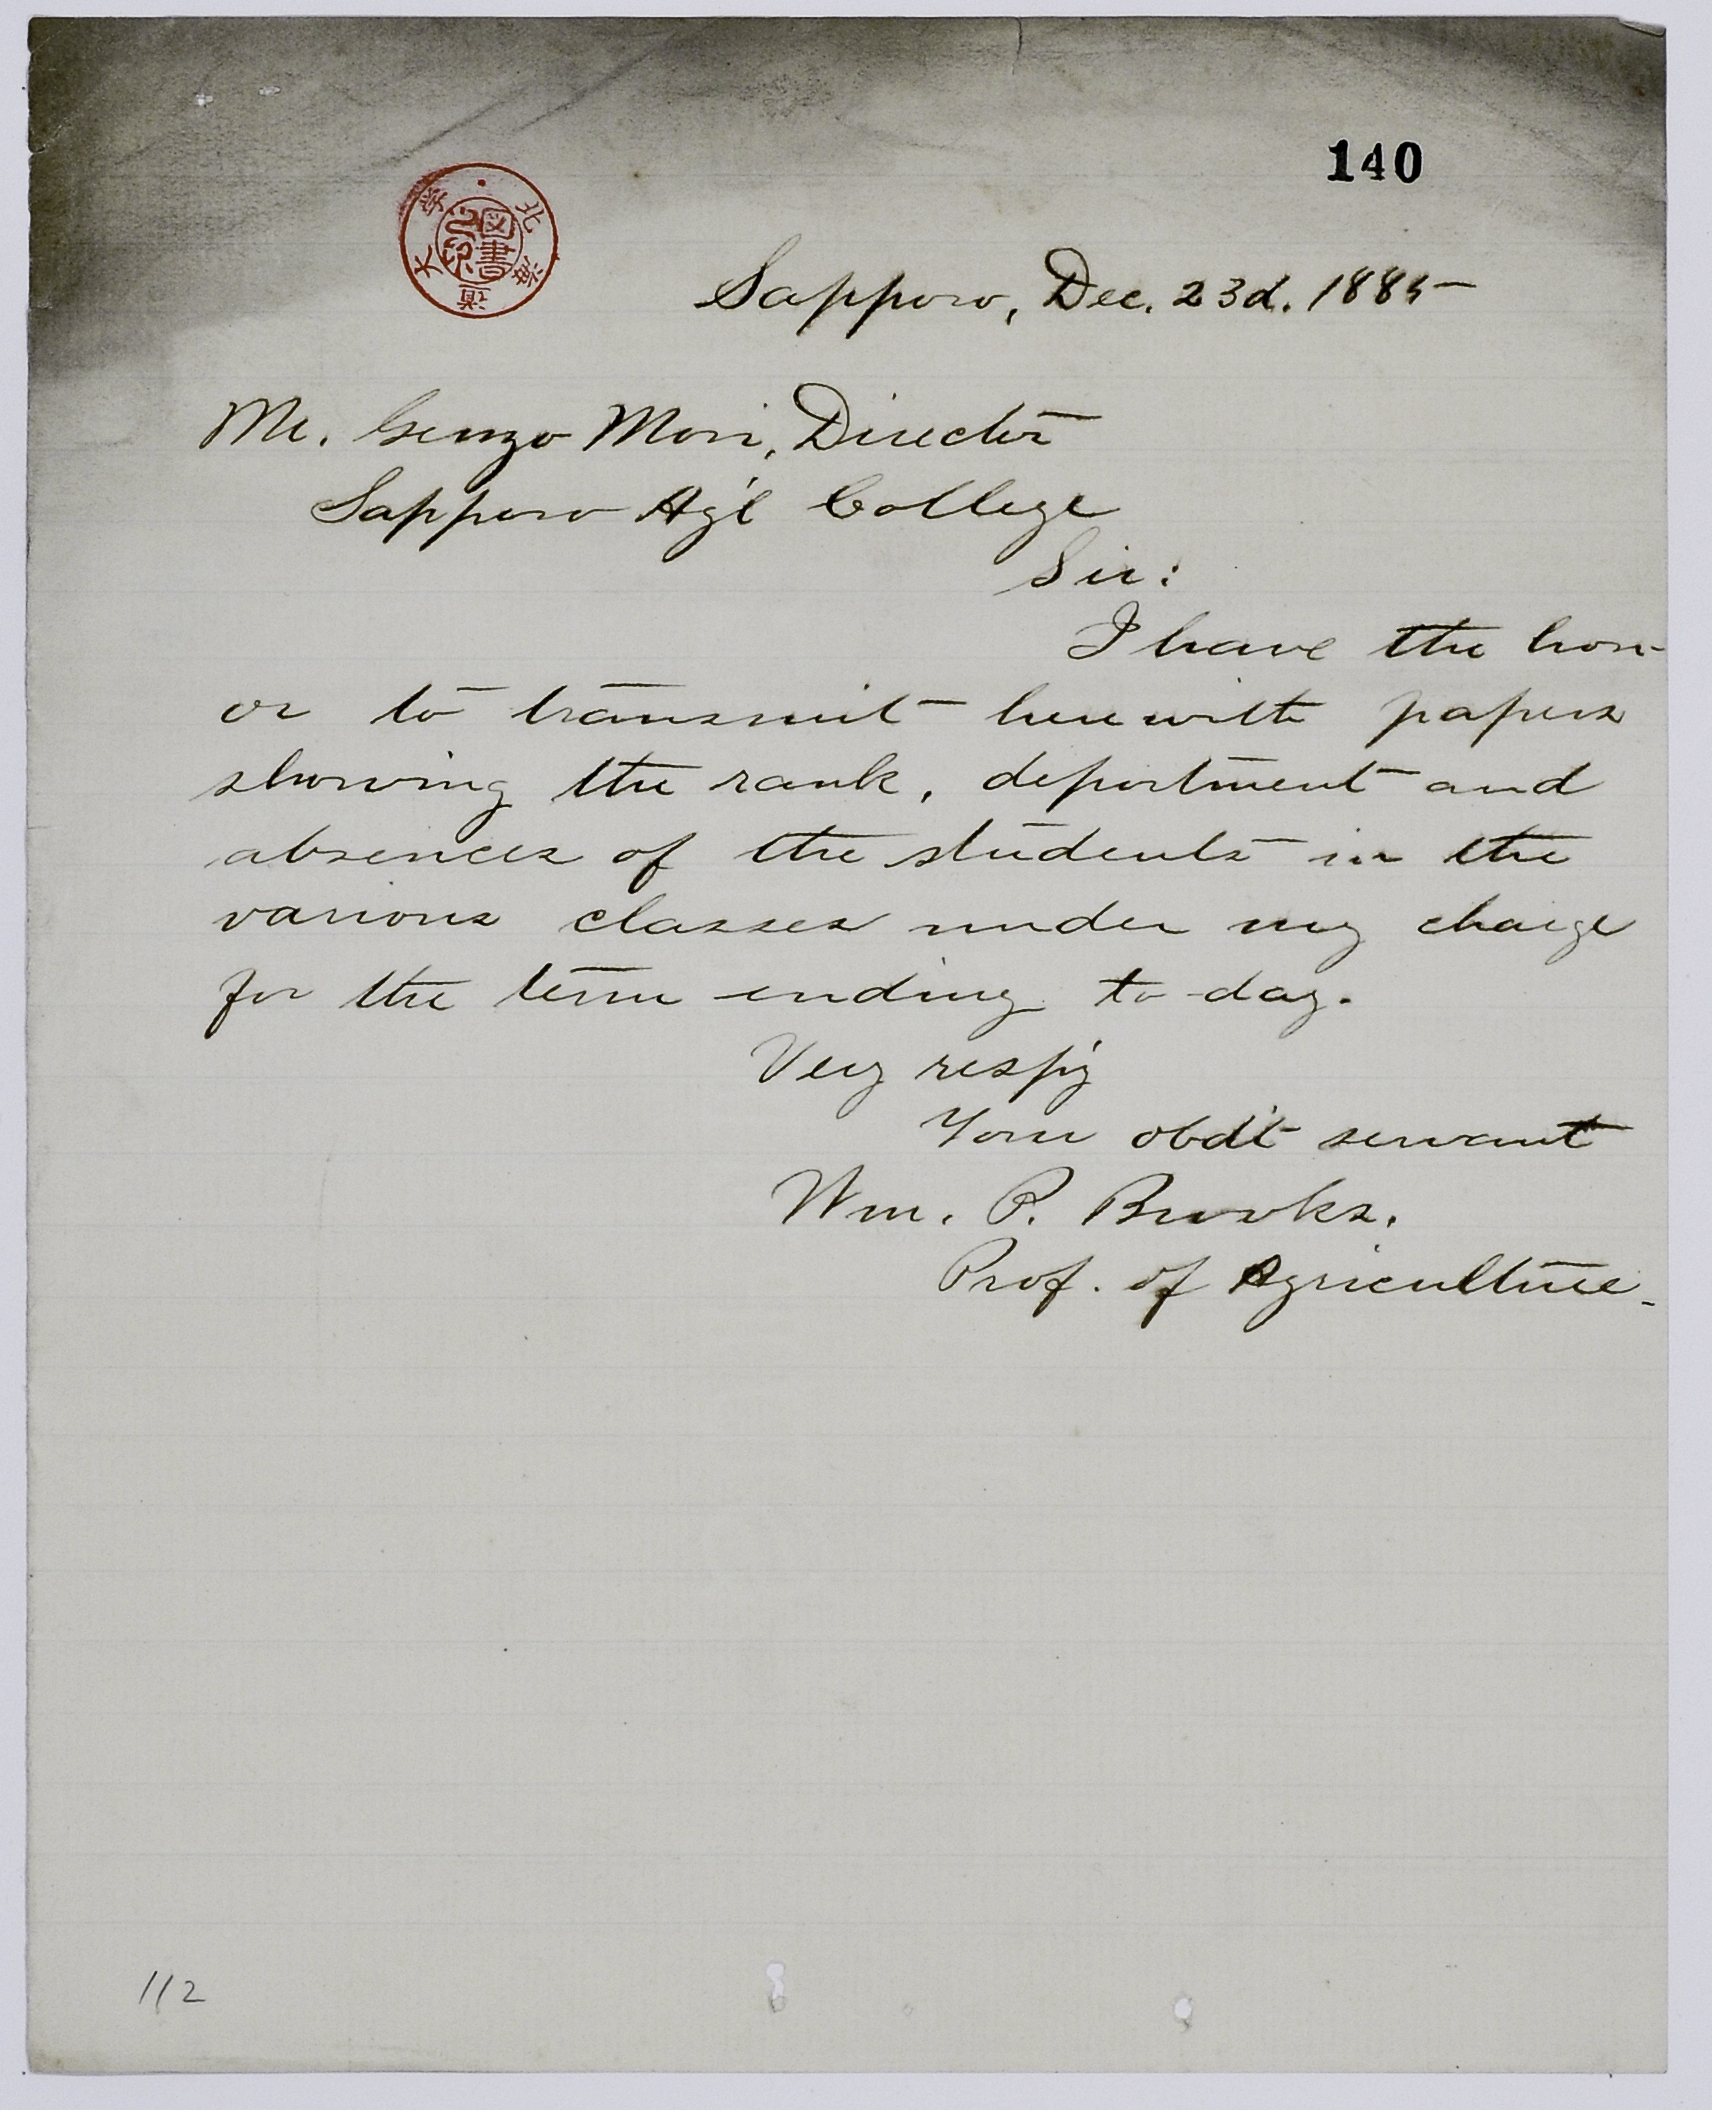 140
北海道大学
図書之印
Sapporo, Dec. 23d. 1885
Mr. Genzo Mori, Director
Sapporo Ag'l College
Sir:
I have the hon-
or to transmit herewith papers
showing the rank, deportment and
absences of the students in the
various classes under my charge
for the term ending to-day.
Very resp'y
Your obd't servant
Wm. P. Brooks.
Prof. of Agriculture.
112